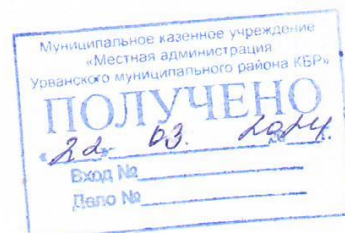 Муниципальное казенное учреждение
«Местная администрация
Урванского муниципального района КБР»
ПОЛУЧЕНО
«22» 03. 2024.
Вход №
Дело №